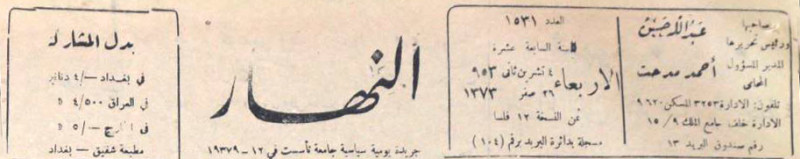 صاحبها
ورئيس تحريرها
عبدالله حسين
المدير المسؤول
المحامي
أحمد مدحت
تلفون: الادارة ٣٢٥٣ المسكن ٩٦٢٠
الادارة خلف جامع الملك ٩ / ١٥
رقم صندوق البريد ١٣
العدد ١٥٣١
السنة السابعة عشرة
الاربعاء
٤ تشرين ثانى ٩٥٣
٢٦ صفر ١٣٧٣
ثمن النسخة ١٢ فلسا
مسجلة بدائرة البريد برقم (١٠٤)
النهار
جريدة يومية سياسية جامعة تأسست في ١٢-
بدل المشاركة
في بغداد -/٤ دنانير
في العراق ٤/٥٠٠ »
في الخارج -/٥ »
مطبعة شفيق - بغداد